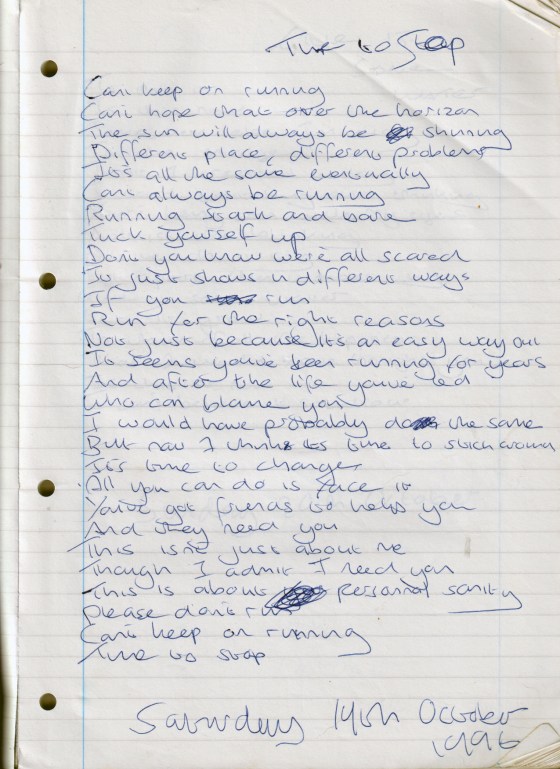 Time to Stop
Can't keep on running
Can't hope that over the horizon
The sun will always be shining
Different place, different problems
It's all the same eventually
Can't always be running
Running stark and bare
Tuck yourself up
Don't you know we're all scared
It just shows in different ways
If you run
Run for the right reasons
Not just because it's an easy way out
It seems you've been running for years
And after the life you've led
Who can blame you
I would have probably done the same
But now I think it's time to stick around
It's time to change
All you can do is face it
You've got friends to help you
And they need you
This isn't just about me
Though I admit I need you
This is about personal sanity
Please don't run
Can't keep on running
Time to stop
Saturday 19th October
1996